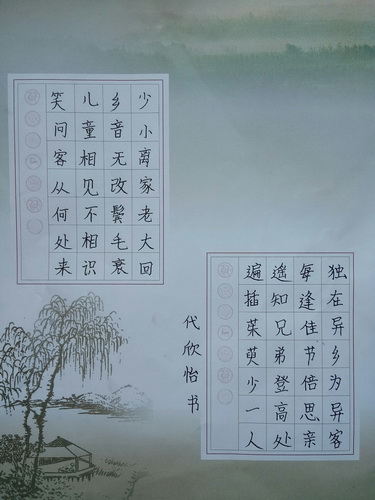 少小离家老大回
乡音无改鬓毛衰
儿童相见不相识
笑问客从何处来
独在异乡为异客
每逢佳节倍思亲
遥知兄弟登高处
遍插茱萸少一人
代欣怡书